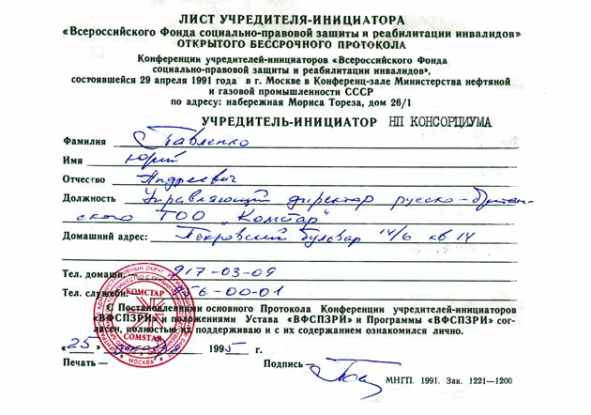 ЛИСТ УЧРЕДИТЕЛЯ-ИНИЦИАТОРА
«Всероссийского Фонда социально-правовой защиты и реабилитации инвалидов»
ОТКРЫТОГО БЕССРОЧНОГО ПРОТОКОЛА
Конференции учредителей-инициаторов «Всероссийского Фонда
социально-правовой защиты и реабилитации инвалидов»,
состоявшейся 29 апреля 1991 года в г. Москве в Конференц-зале Министерства нефтяной
и газовой промышленности СССР
по адресу: набережная Мориса Тореза, дом 26/1
УЧРЕДИТЕЛЬ-ИНИЦИАТОР НП КОНСОРЦИУМА
Фамилия Павленко
Имя Юрий
Отчество Андреевич
Должность Управляющий директор русско-британ-
ского ТОО „Комстар"
Домашний адрес: Покровский бульвар 14/6 кв 14
Тел. домашн. — 917-03-09
Тел. служебн. 956-00-01
С Постановлениями основного Протокола Конференции учредителей-инициаторов
«ВФСПЗРИ» и положениями Устава «ВФСПЗРИ» и Программы «ВФСПЗРИ» сог-
ласен, полностью их поддерживаю и с их содержанием ознакомился лично.
«25» декабря 1995 г.
Печать — Подпись —
МНГП. 1991. Зак. 1221—1200
КОМСТАР
COMSTAR
МОСКВА